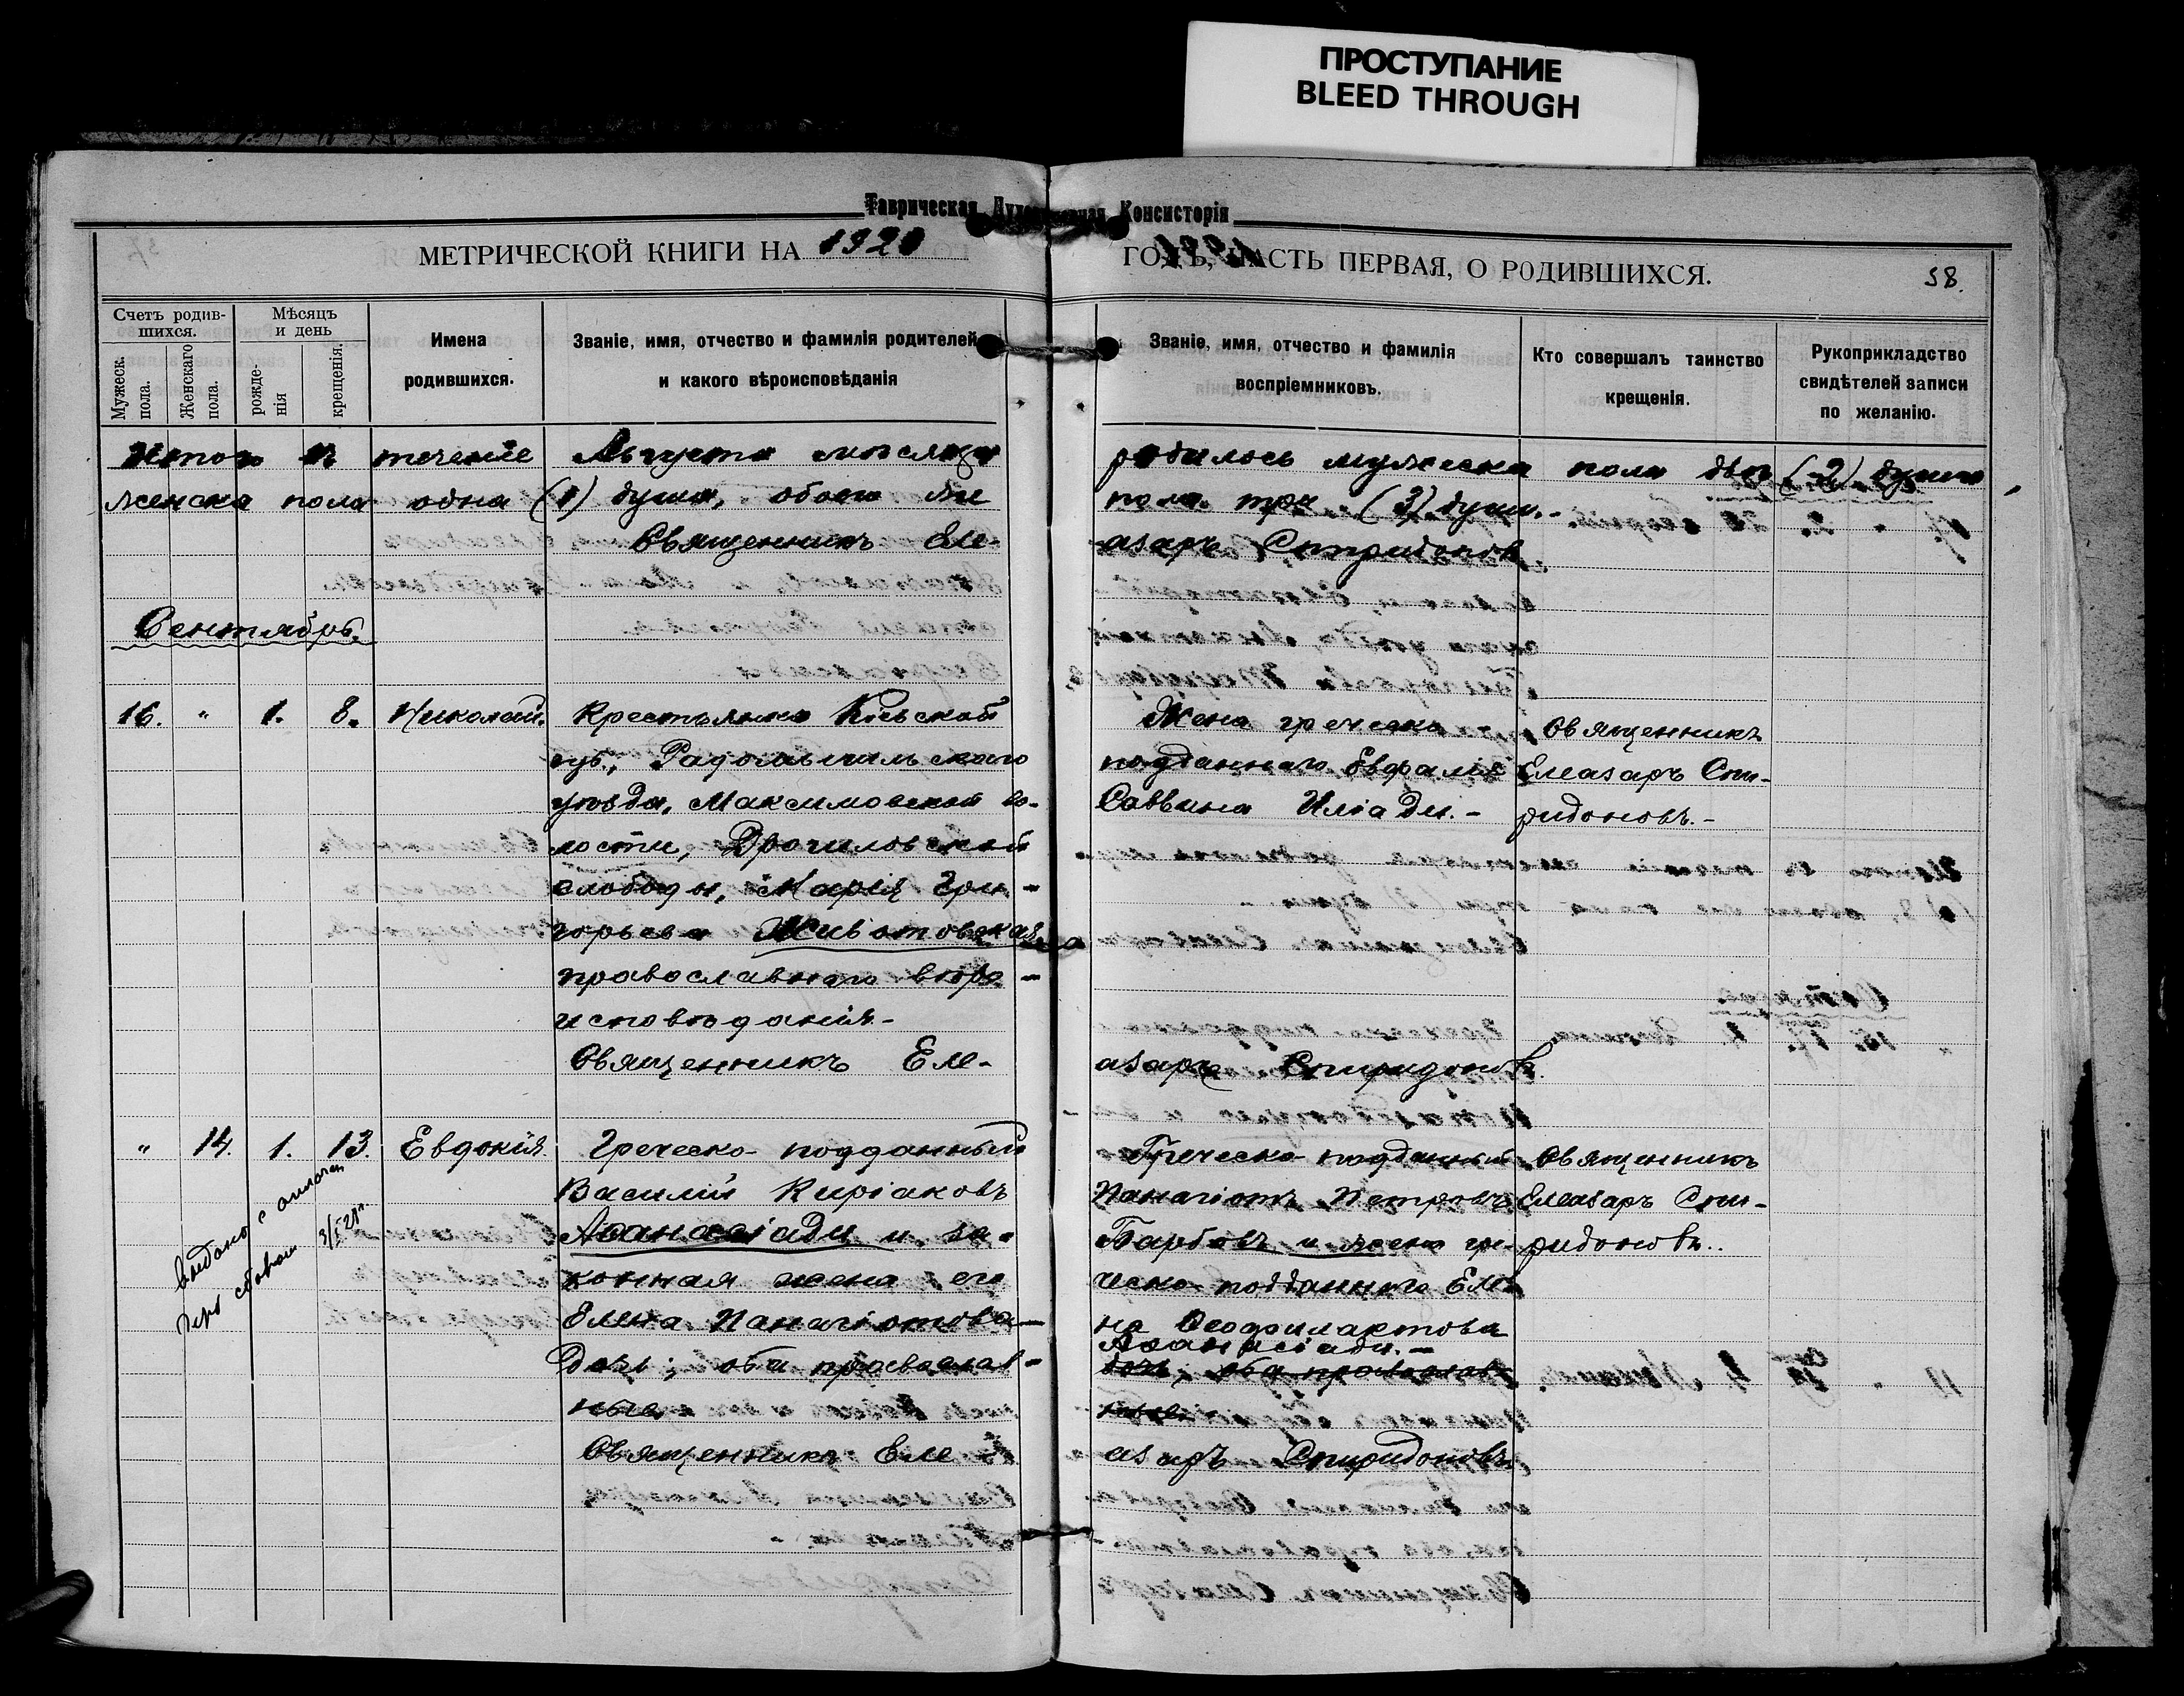 ПРОСТУПАНИЕ
BLEED THROUGH
Таврическая Духовная Консисторія
МЕТРИЧЕСКОЙ КНИГИ НА 1920 ГОДЪ, ЧАСТЬ ПЕРВАЯ, О РОДИВШИХСЯ.
58.
Счетъ родив-
шихся.
Мужеск.
пола.
Женскаго
пола.
Мѣсяцъ
и день
рожде-
нія
крещенія.
Имена
родившихся.
Званіе, имя, отчество и фамилія родителей
и какого вѣроисповѣданія
Званіе, имя, отчество и фамилія
воспріемниковъ.
Кто совершалъ таинство
крещенія.
Рукоприкладство
свидѣтелей записи
по желанію.
Итого въ теченіе Августа мѣсяца родилось мужеска пола двѣ (2) души,
женска пола одна (1) душа, обоего же пола три (3) души.-
Священникъ Еле- азаръ Спиридоновъ
Сентябрь.
16. " 1. 8. Николай.
Крестьянка Кіевской
губ., Радомысльскаго
уѣзда, Максимовской во-
лости, Драчиловской
слободы, Марія Гри-
горьева Животовская
православнаго вѣро-
исповѣданія.-
Жена греческо-
подданнаго Евфалія
Саввина Иліади.-
Священникъ
Елеазаръ Спи-
ридоновъ.-
Священникъ Еле- азаръ Спиридоновъ.
" 14. 1. 13. Евдокія
Греческо-подданный
Василій Киріаковъ
Аѳанасіади и за-
конная жена его
Елена Панагіотова-
; оба православ-
ные
Греческо-подданный
Панагіотъ Петровъ
Барбовъ и жена гре-
ческо-подданнаго Еле-
на Ѳеофилактова
Аѳанасіади.-
оба православ-
ные.
Священникъ
Елеазаръ Спи-
ридоновъ..
Священникъ Еле- азаръ Спиридоновъ
Выдано с оплатой
сбором